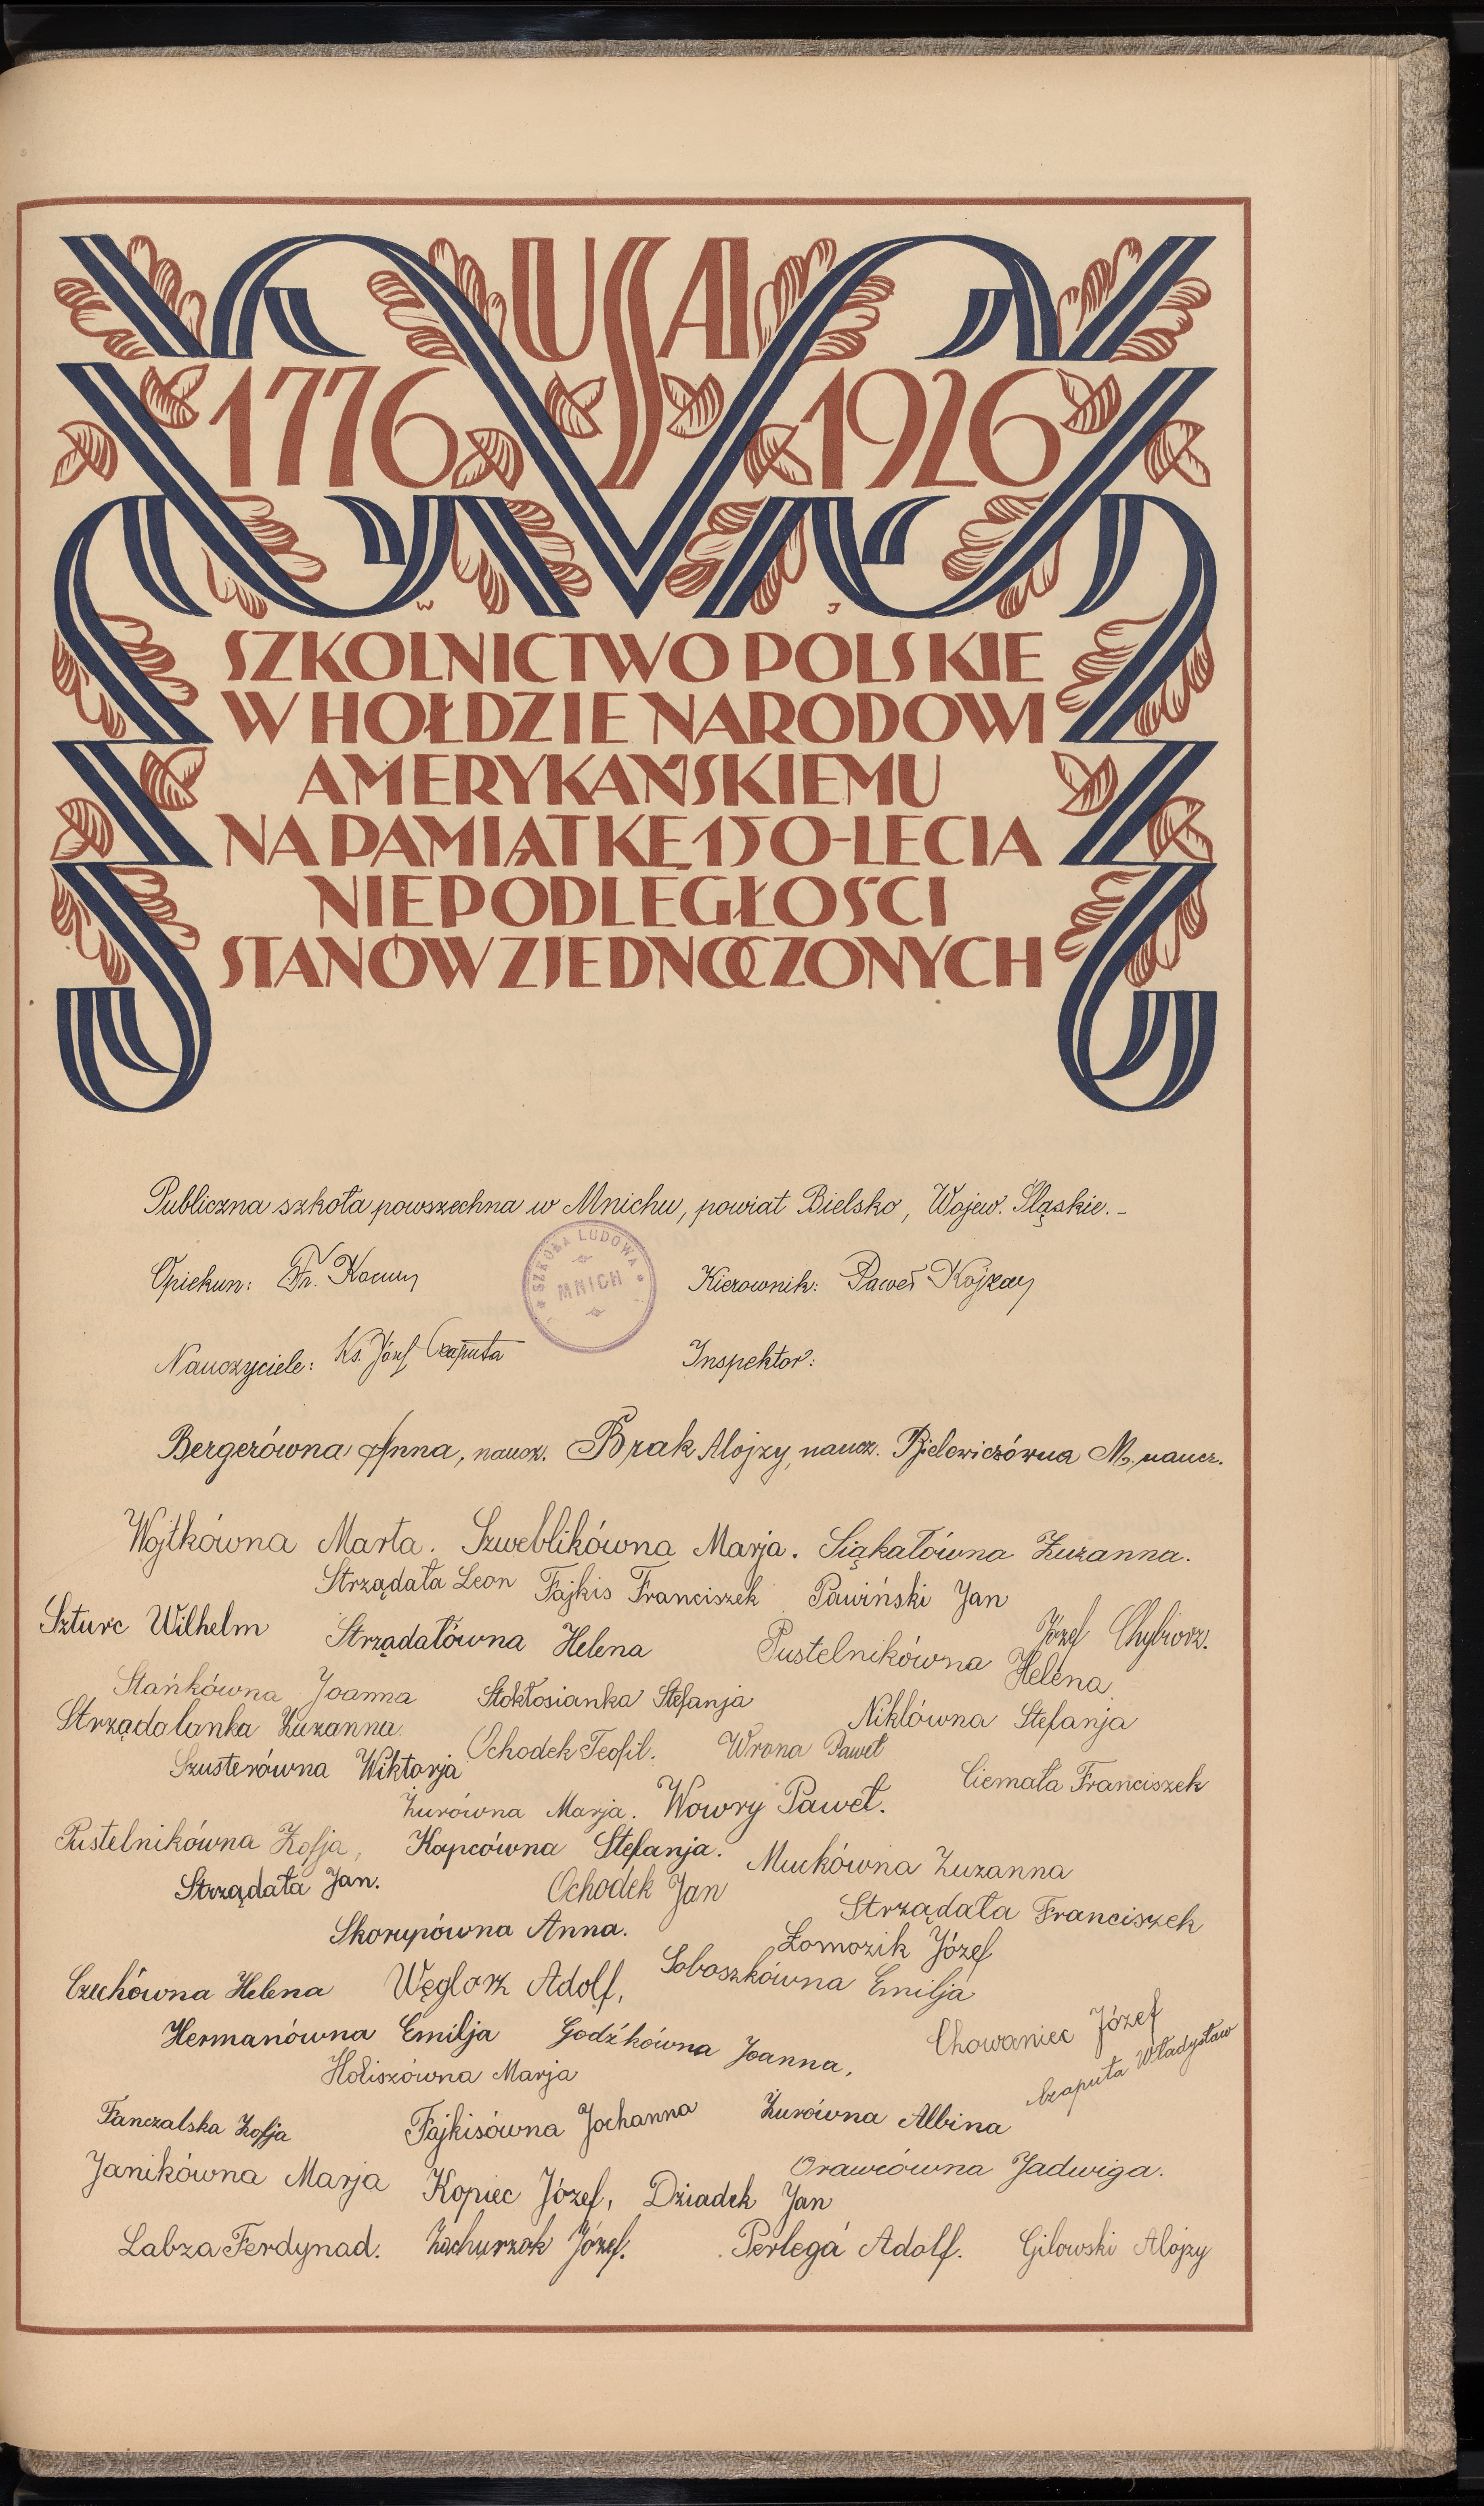 USA
1776 1926
W J
SZKOLNICTWO POLSKIE
W HOŁDZIE NARODOWI
AMERYKAŃSKIEMU
NA PAMIĄTKĘ 150-LECIA
NIEPODLEGŁOŚCI
STANÓW ZJEDNOCZONYCH
Publiczna szkoła powszechna w Mnichu, powiat Bielsko, Wojew. Śląskie.-
SZKOŁA LUDOWA
MNICH
Opiekun: Fr. Kocury Kierownik: Paweł Kojzar
Nauczyciele: Ks. Józef Czaputa Inspektor:
Bergerówna Anna, naucz. Brak Alojzy, naucz. Bielewiczówna M. naucz.
Wojtkówna Marta. Szweblikówna Marja. Siąkałówna Zuzanna.
Strządała Leon Fajkis Franciszek Pawiński Jan
Szturc Wilhelm Strządałówna Helena Pustelnikówna Helena Józef Chybiorz.
Stańkówna Joanna Stokłosianka Stefanja Niklówna Stefanja
Strządalanka Zuzanna. Ochodek Teofil. Wrona Paweł
Szusterówna Wiktorja Ciemała Franciszek
Żurówna Marja. Wowry Paweł.
Pustelnikówna Zofja, Kopcówna Stefanja. Muckówna Zuzanna
Strządała Jan. Ochodek Jan Strządała Franciszek
Skorupówna Anna. Łomozik Józef
Czechówna Helena Węglorz Adolf, Soboszkówna Emilja
Hermanówna Emilja Godźkówna Joanna, Chowaniec Józef
Holiszówna Marja Czaputa Władysław
Fanczalska Zofja Fajkisówna Jochanna Żurówna Albina
Janikówna Marja Kopiec Józef, Dziadek Jan Orawcówna Jadwiga.
Labza Ferdynad. Zachurzok Józef. Perlega Adolf. Gilowski Alojzy